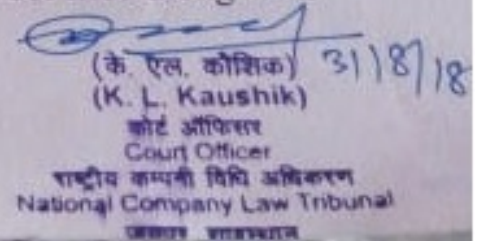 (के. एल. कौशिक) 31/8/18
(K. L. Kaushik)
कोर्ट ऑफिसर
Court Officer
राष्ट्रीय कम्पनी विधि अधिकरण
National Company Law Tribunal